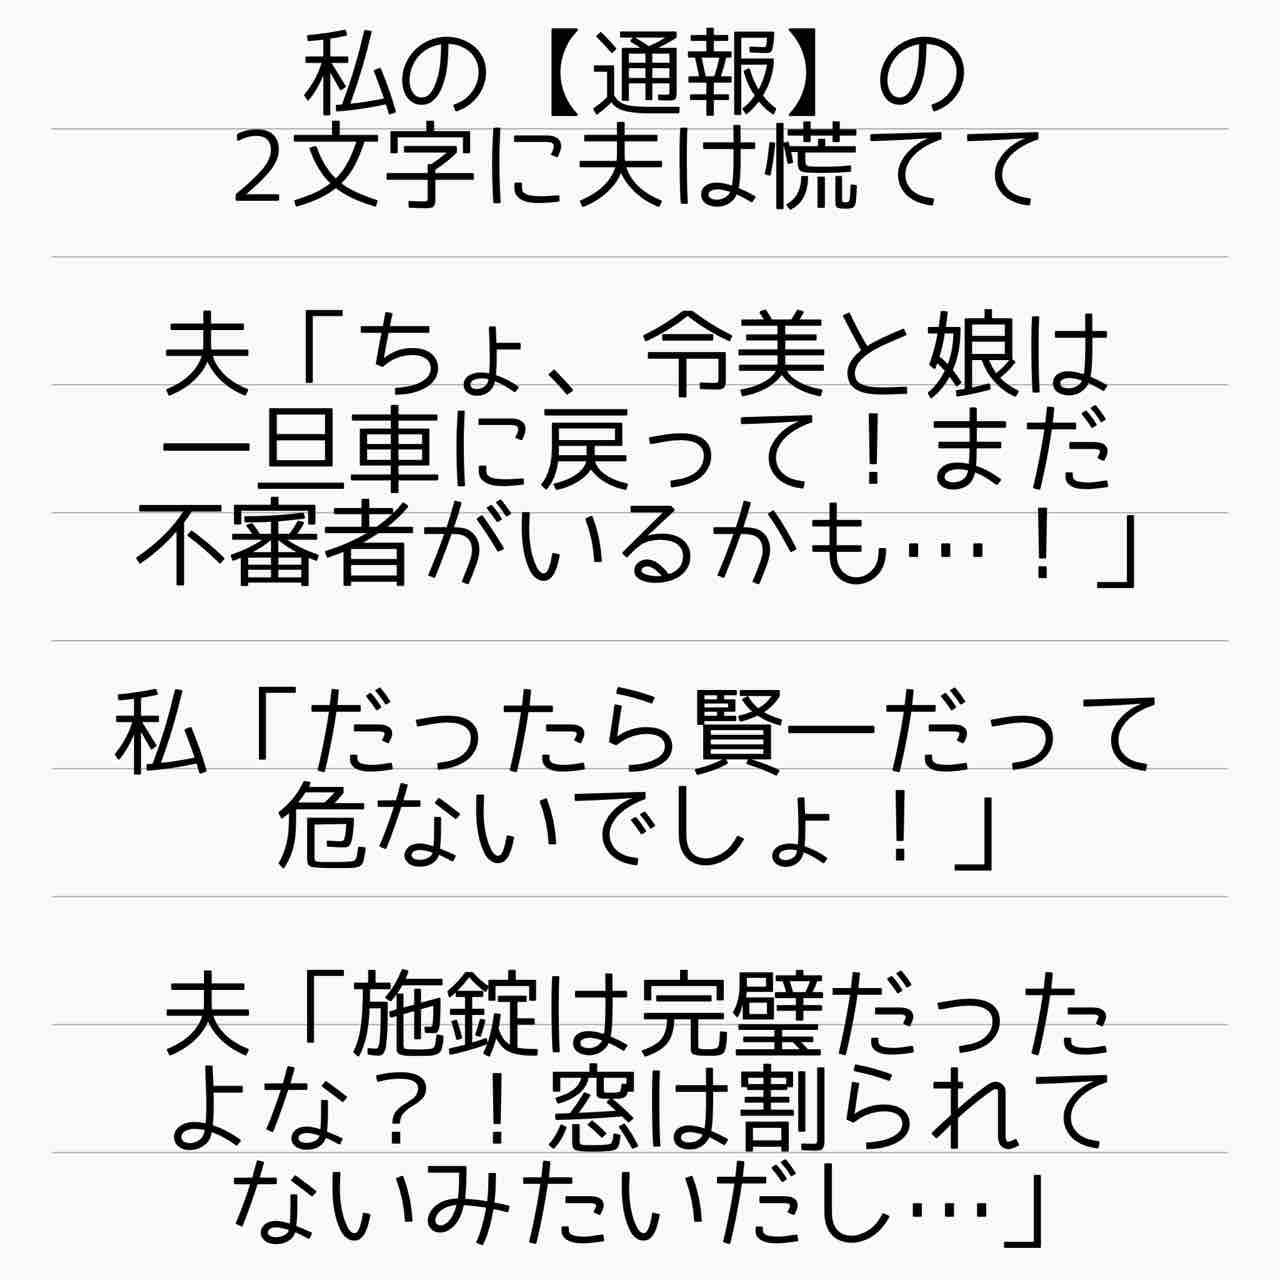 私の【通報】の
2文字に夫は慌てて
夫「ちょ、令美と娘は
一旦車に戻って！まだ
不審者がいるかも…！」
私「だったら賢一だって
危ないでしょ！」
夫「施錠は完璧だった
よな？！窓は割られて
ないみたいだし…」